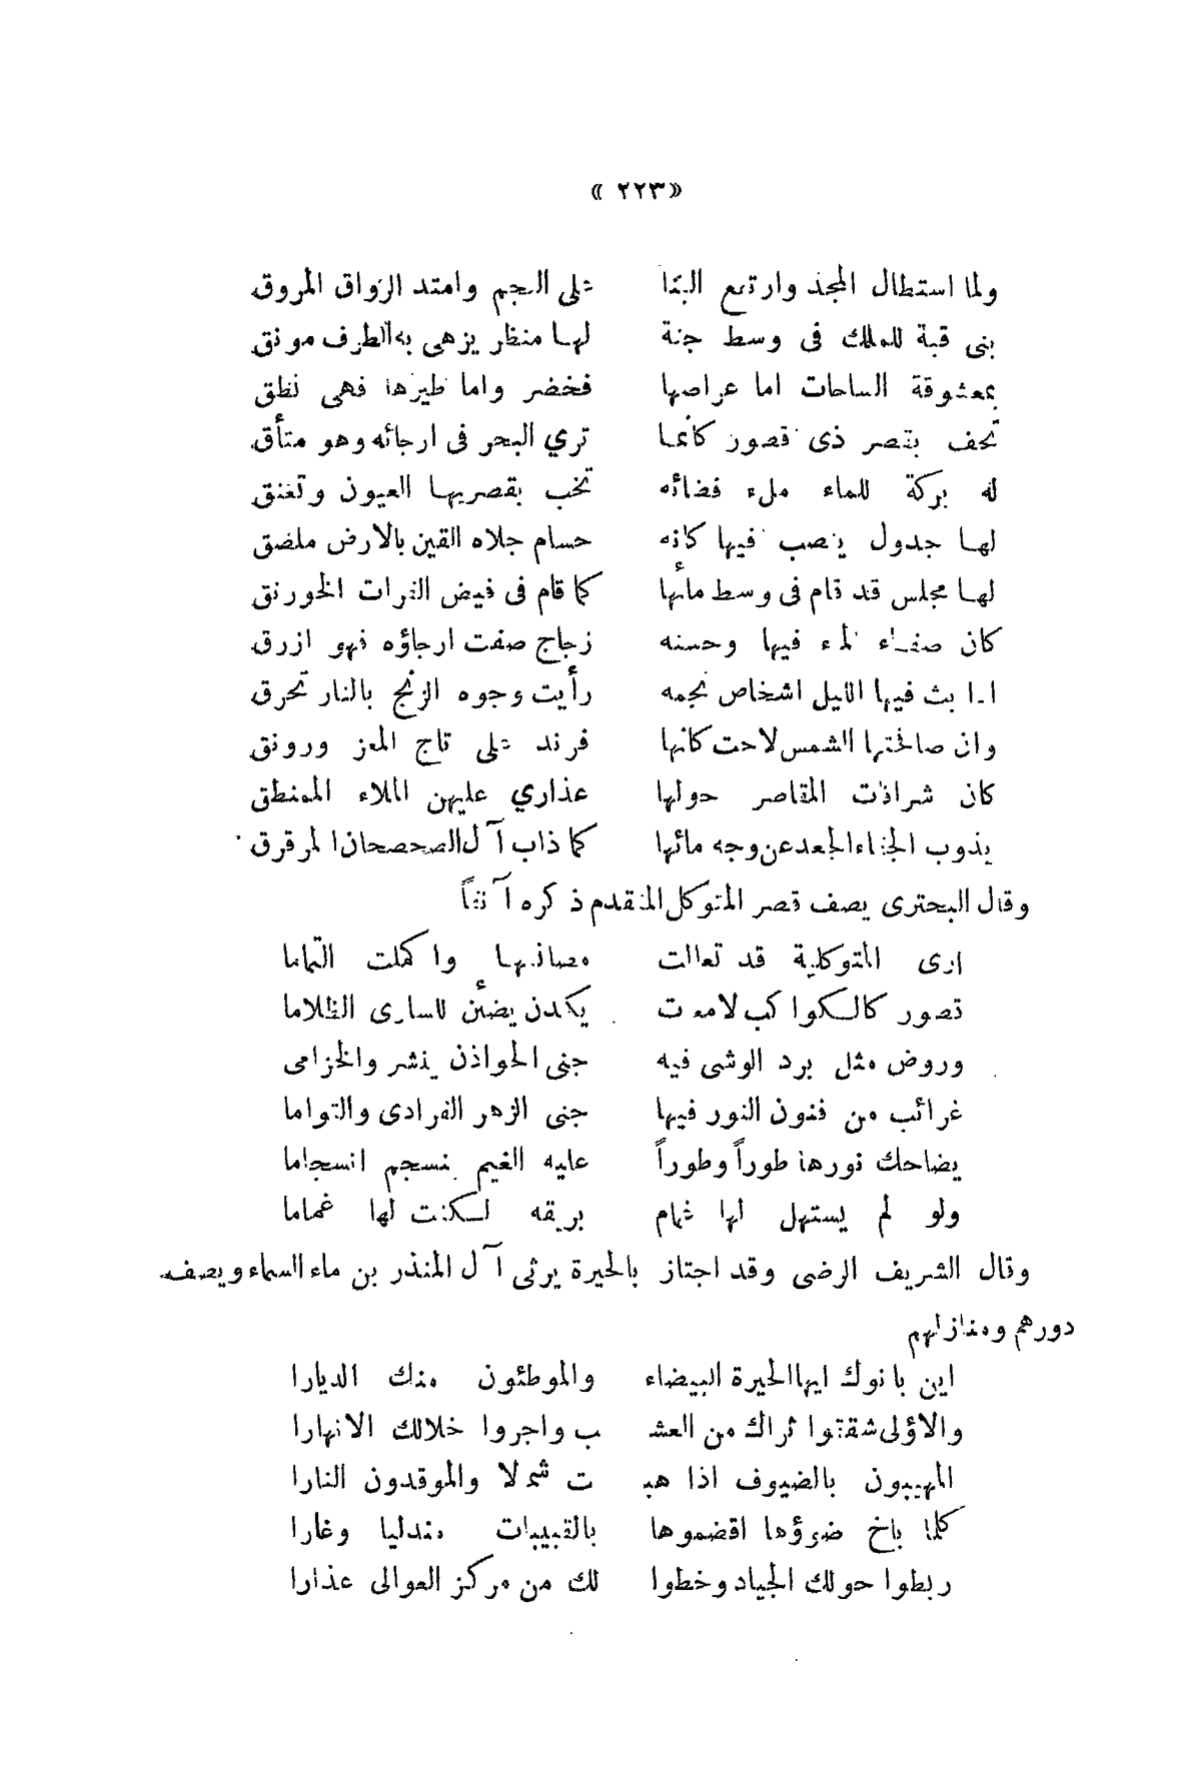 «٢٢٣»
ولما استطال المجد وارتفع البنا على النجم وامتد الرواق المروق
بنى قبة للملك فى وسط جنة لها منظر يزهى به الطرف مونق
بمعشوقة الساحات اما عراصها فخضر واما طيرها فهى نطق
تحف بقصر ذى قصور كأنما تري البحر فى ارجائه وهو متأق
له بركة للماء ملء فضائه تخب بقصريها العيون وتعنق
لها جدول ينصب فيها كانه حسام جلاه القين بالارض ملصق
لها مجلس قد قام فى وسط مائها كما قام فى فيض الفرات الخورنق
كان صفاء الماء فيها وحسنه زجاج صفت ارجاؤه فهو ازرق
اذا بث فيها الليل اشخاص نجمه رأيت وجوه الزنج بالنار تحرق
وان صافحتها الشمس لاحت كانها فرند على تاج المعز ورونق
كان شرافات المقاصر حولها عذاري عليهن الملاء الممنطق
يذوب الجفاء الجعد عن وجه مائها كما ذاب آل الصحصحان المرقرق
وقال البحترى يصف قصر المتوكل المتقدم ذكره آنفاً
ارى المتوكلية قد تعالت مصانعها واكملت التماما
قصور كالكواكب لامعات يكدن يضئن للسارى الظلاما
وروض مثل برد الوشى فيه جنى الحواذن ينشر والخزامى
غرائب من فنون النور فيها جنى الزهر الفرادى والتواما
يضاحك نورها طوراً وطوراً عليه الغيم ينسجم انسجاما
ولو لم يستهل لها غمام بريقه لكنت لها غماما
وقال الشريف الرضى وقد اجتاز بالحيرة يرثى آل المنذر بن ماء السماء ويصف
دورهم ومنازلهم
اين بانوك ايها الحيرة البيضاء والموطئون منك الديارا
والاؤلى شققوا ثراك من العشـ ـب واجروا خلالك الانهارا
المهيبون بالضيوف اذا هبـ ـت شملا والموقدون النارا
كلما باخ ضوؤها اقضموها بالقبيبات مندليا وغارا
ربطوا حولك الجياد وخطوا لك من مركز العوالى عذارا